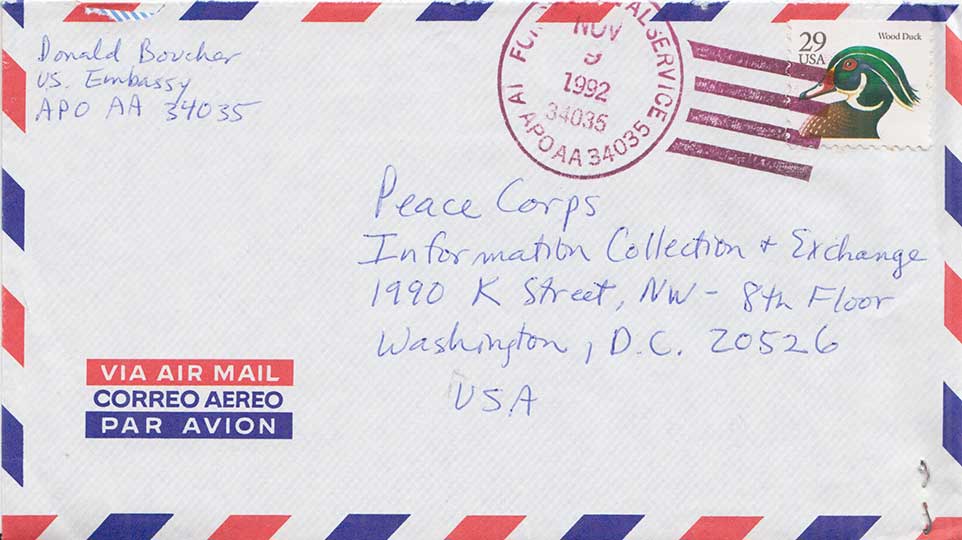 Donald Boucher
US. Embassy
APO AA 34035
NOV
9
1992
34035
SERVICE
APO AA 34035
29
USA
Wood Duck
Peace Corps
Information Collection + Exchange
1990 K Street, NW - 8th Floor
Washington, D.C. 20526
USA
VIA AIR MAIL
CORREO AEREO
PAR AVION